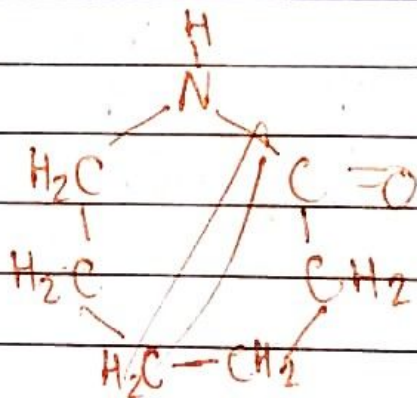 H
N
H₂C C =O
H₂C CH₂
H₂C — CH₂